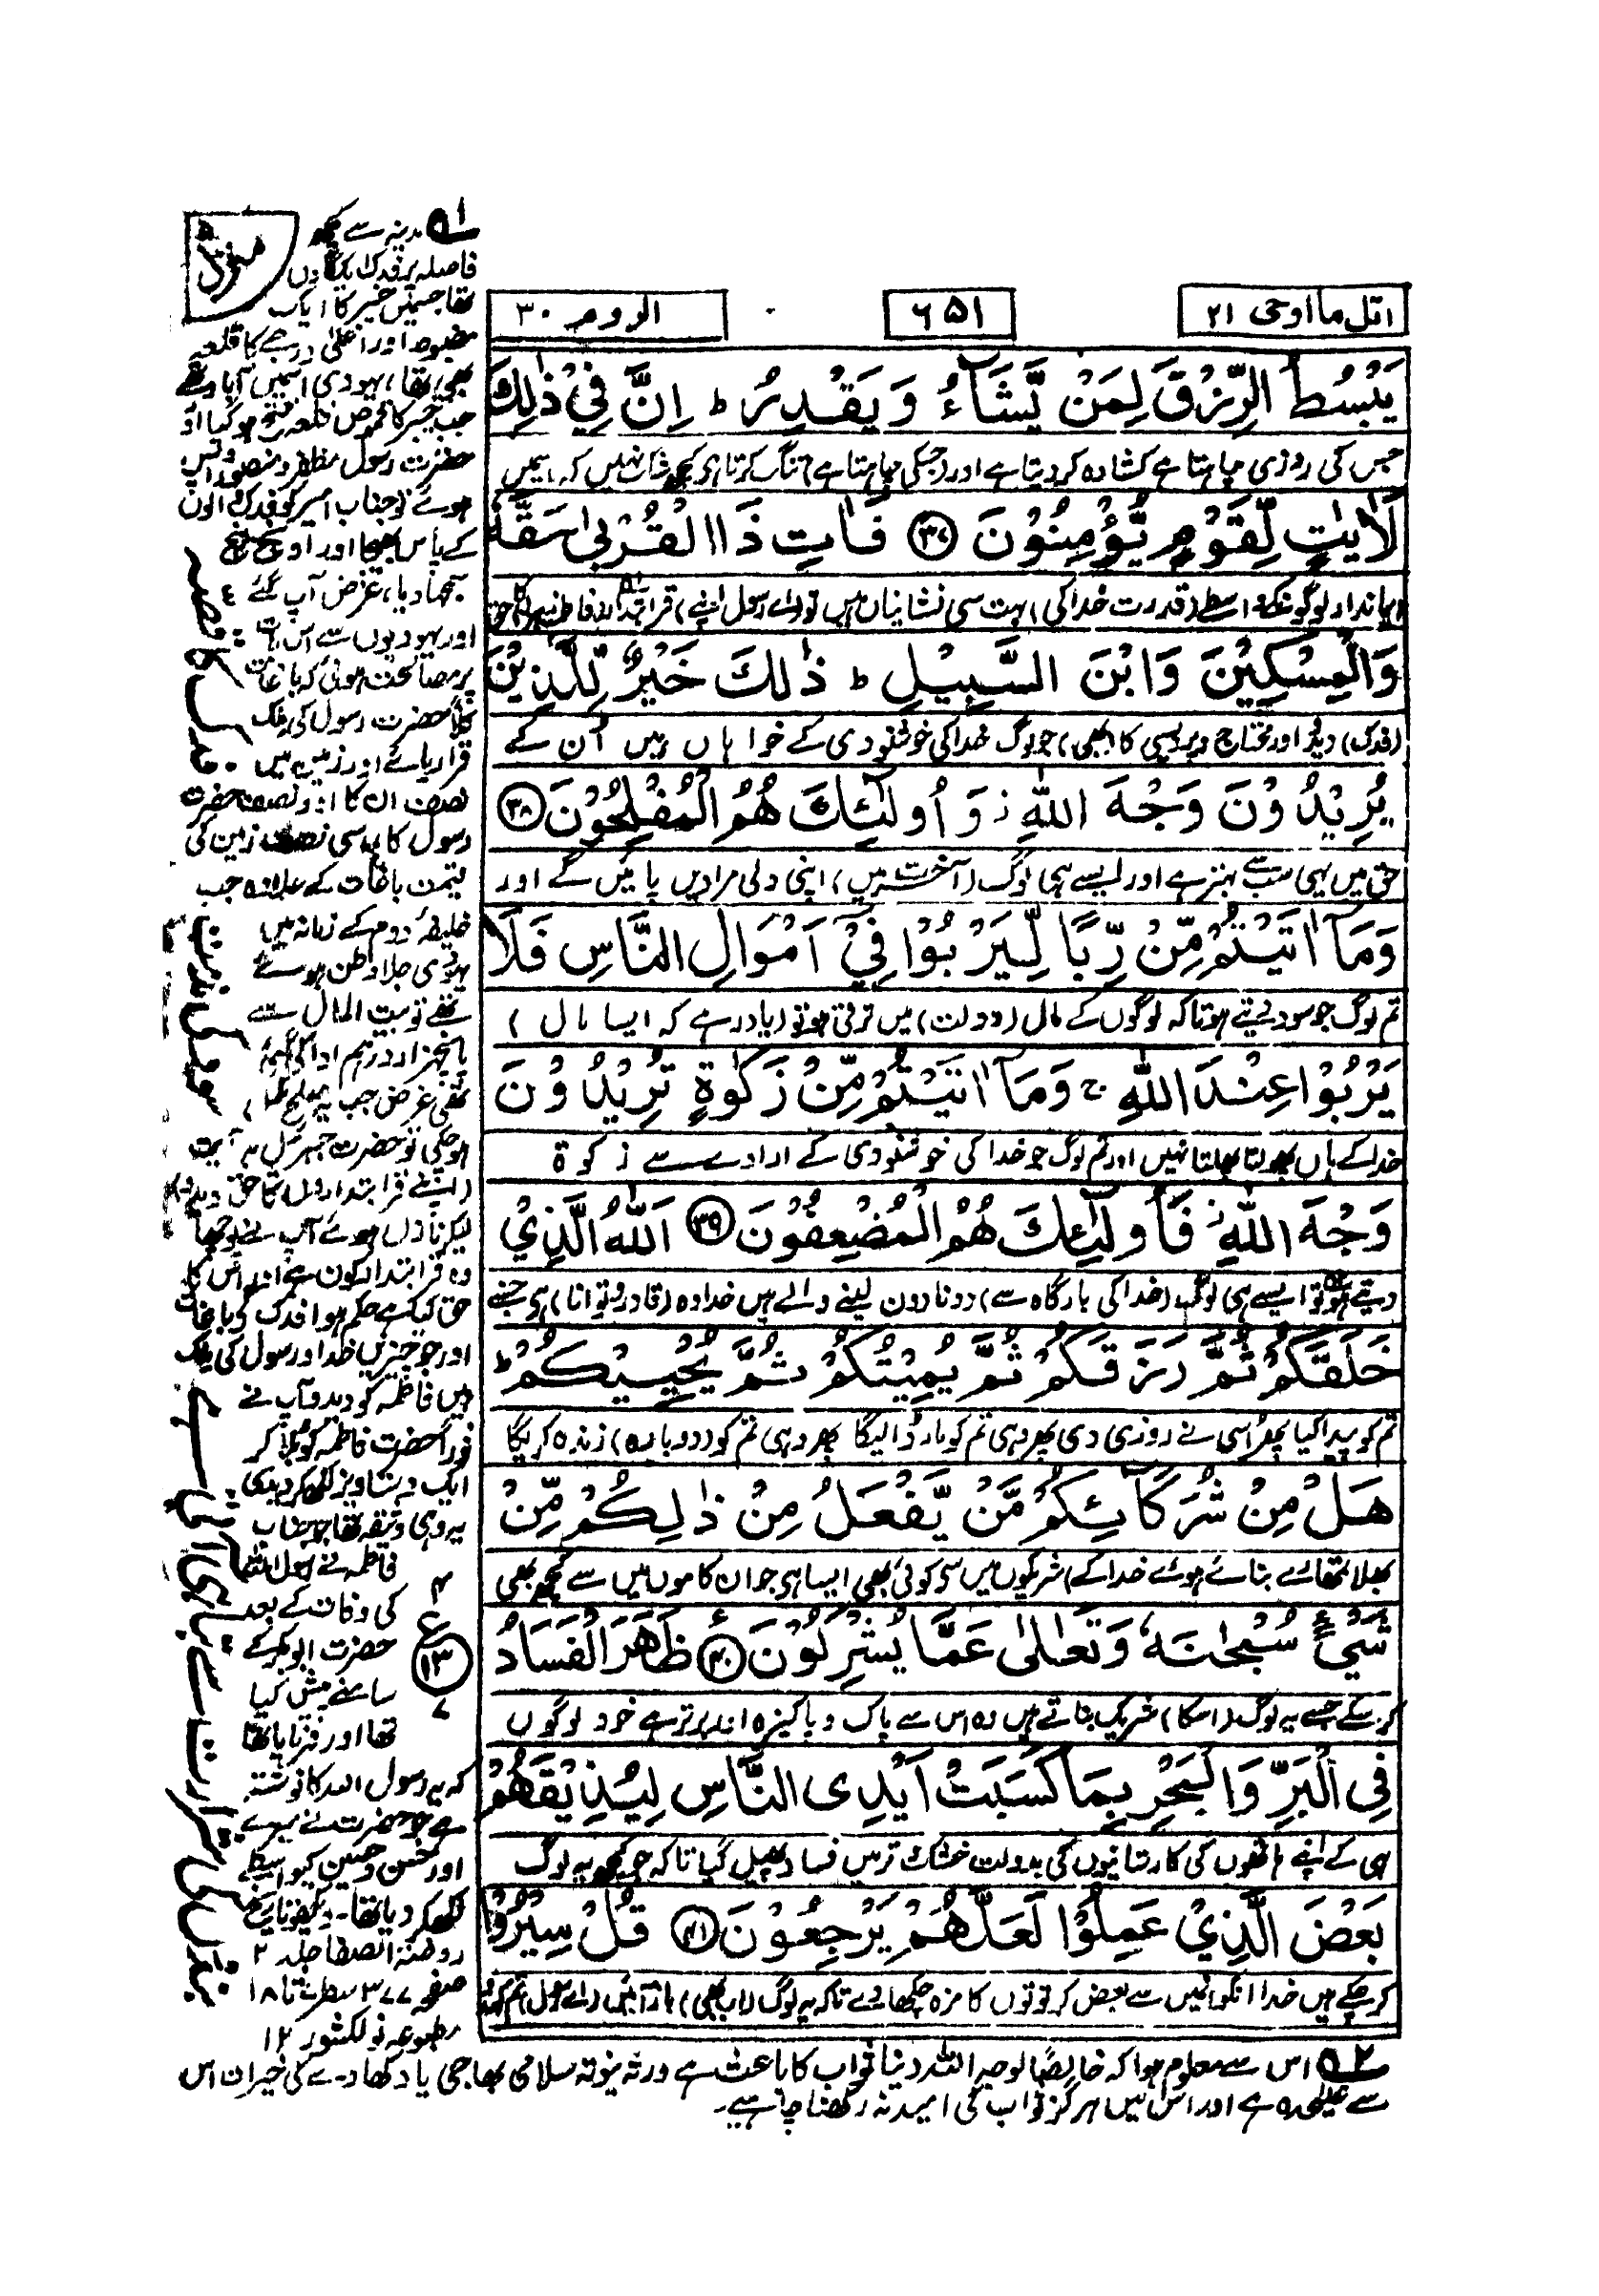 اتل ما اوحی ۲۱
۶۵۱
الروم ۳۰
يَبْسُطُ الرِّزْقَ لِمَنْ يَّشَآءُ وَيَقْدِرُ ؕ اِنَّ فِيْ ذٰلِكَ
جس کی روزی چاہتا ہے کشادہ کر دیتا ہے اور (جسکی چاہتا ہے) تنگ کرتا ہے کچھ شک نہیں کہ اسمیں
لَاٰيٰتٍ لِّقَوْمٍ يُّؤْمِنُوْنَ ﴿۳۷﴾ فَاٰتِ ذَا الْقُرْبٰى حَقَّهٗ
ایماندار لوگونکے واسطے (قدرت خدا کی) بہت سی نشانیاں ہیں تو (اے رسول اپنے) قرابتدار (فاطمہ زہرا) کا حق
وَالْمِسْكِيْنَ وَابْنَ السَّبِيْلِ ؕ ذٰلِكَ خَيْرٌ لِّلَّذِيْنَ
(فدک) دیدو اور محتاج و پردیسی کا (بھی) جو لوگ خدا کی خوشنودی کے خواہاں ہیں اُن کے
يُرِيْدُوْنَ وَجْهَ اللّٰهِ ز وَاُولٰٓئِكَ هُمُ الْمُفْلِحُوْنَ ﴿۳۸﴾
حق میں یہی سب سے بہتر ہے اور ایسے ہی لوگ (آخرت میں) اپنی دلی مرادیں پائیں گے اور
وَمَآ اٰتَيْتُمْ مِّنْ رِّبًا لِّيَرْبُوَا۟ فِيْٓ اَمْوَالِ النَّاسِ فَلَا
تم لوگ جو سود دیتے ہو تاکہ لوگوں کے مال (دولت) میں ترقی ہو تو (یاد رہے کہ ایسا مال)
يَرْبُوْا عِنْدَ اللّٰهِ ج وَمَآ اٰتَيْتُمْ مِّنْ زَكٰوةٍ تُرِيْدُوْنَ
خدا کے ہاں پھولتا پھلتا نہیں اور تم لوگ جو خدا کی خوشنودی کے ارادے سے زکوۃ
وَجْهَ اللّٰهِ ز فَاُولٰٓئِكَ هُمُ الْمُضْعِفُوْنَ ﴿۳۹﴾ اَللّٰهُ الَّذِيْ
دیتے ہو تو ایسے ہی لوگ (خدا کی بارگاہ سے) دونا دون لینے والے ہیں خدا وہ (قادر و توانا) ہے جسنے
خَلَقَكُمْ ثُمَّ رَزَقَكُمْ ثُمَّ يُمِيْتُكُمْ ثُمَّ يُحْيِيْكُمْ ؕ
تم کو پیدا کیا پھر اُسی نے روزی دی پھر وہی تم کو مار ڈالیگا پھر وہی تم کو (دوبارہ) زندہ کریگا
هَلْ مِنْ شُرَكَآئِكُمْ مَّنْ يَّفْعَلُ مِنْ ذٰلِكُمْ مِّنْ
بھلا تمھارے بنائے ہوئے خدا کے) شریکوں میں سے کوئی بھی ایسا ہے جو ان کاموں میں سے کچھ بھی
شَيْءٍ ؕ سُبْحٰنَهٗ وَتَعٰلٰى عَمَّا يُشْرِكُوْنَ ﴿۴۰﴾ ظَهَرَ الْفَسَادُ
کر سکے جسے یہ لوگ (اسکا) شریک بناتے ہیں وہ اس سے پاک و پاکیزہ اور برتر ہے خود لوگوں
فِى الْبَرِّ وَالْبَحْرِ بِمَا كَسَبَتْ اَيْدِى النَّاسِ لِيُذِيْقَهُمْ
ہی کے اپنے ہاتھوں کی کارستانیوں کی بدولت خشک و تر میں فساد پھیل گیا تاکہ جو کچھ یہ لوگ
بَعْضَ الَّذِيْ عَمِلُوْا لَعَلَّهُمْ يَرْجِعُوْنَ ﴿۴۱﴾ قُلْ سِيْرُوْا
کر چکے ہیں خدا انکو انمیں سے بعض کرتوتوں کا مزہ چکھا دے تاکہ یہ لوگ (اب بھی) باز آئیں (اے رسول) تم کہدو
منزل ۵
۱ مدینہ سے کچھ
فاصلہ پر فدک ایک گاؤں
تھا جسمیں خیبر کا ایک
مضبوط اور اعلیٰ درجے کا قلعہ
بھی تھا، یہودی اسمیں آباد تھے
جب خیبر کا قموص قلعہ فتح ہو گیا اور
حضرت رسول مظفر و منصور واپس
ہوئے تو جناب امیر کو فدک والوں
کے پاس بھیجا اور اونچ نیچ
سمجھا دیا، غرض آپ گئے
اور یہودیوں سے اس بات
پر مصالحت ہوئی کہ باغات
کلاً حضرت رسول کی ملک
قرار پائے اور زمین میں
نصف ان کا اور نصف حضرت
رسول کا اسی نصف زمین کی
قیمت باغات کے علاوہ جب
خلیفۂ دوم کے زمانہ میں
یہودی جلا وطن ہوئے
تھے تو بیت المال سے
پانچہزار درہم ادا کی گئی
تھی غرض جب یہ صلح مکمل
ہو چکی تو حضرت جبرئیل یہ آیت
(اپنے قرابتداروں کا حق دیدو)
لیکر نازل ہوئے آپ نے پوچھا
وہ قرابتدار کون ہے اور اُس کا
حق کیا ہے حکم ہوا فدک کے باغات
اور جو چیزیں خدا اور رسول کی ملک
ہیں فاطمہ کو دیدو آپ نے
فوراً حضرت فاطمہ کو بلا کر
ایک دستاویز لکھ کر دیدی
یہ وہی وثیقہ تھا جو جناب
فاطمہ نے رسول اللہ
کی وفات کے بعد
حضرت ابوبکر کے
سامنے پیش کیا
تھا اور فرمایا تھا
کہ یہ رسول اللہ کا نوشتہ
ہے جو حضرت نے میرے
اور حسن و حسین کیواسطے
لکھ کر دیا تھا۔ دیکھو تاریخ
روضۃ الصفا جلد ۲
صفحہ ۳۷۷ سطر تا ۱۸
مطبوعہ نولکشور ۱۲
۴
ع
۱۳
۷
۲ اس سے معلوم ہوا کہ خالصًا لوجہ اللہ دینا ثواب کا باعث ہے ورنہ نیوتہ سلامی بھاجی یا دکھاوے کی خیرات اس
سے علیحدہ ہے اور اس میں ہرگز ثواب کی امید نہ رکھنا چاہیے۔